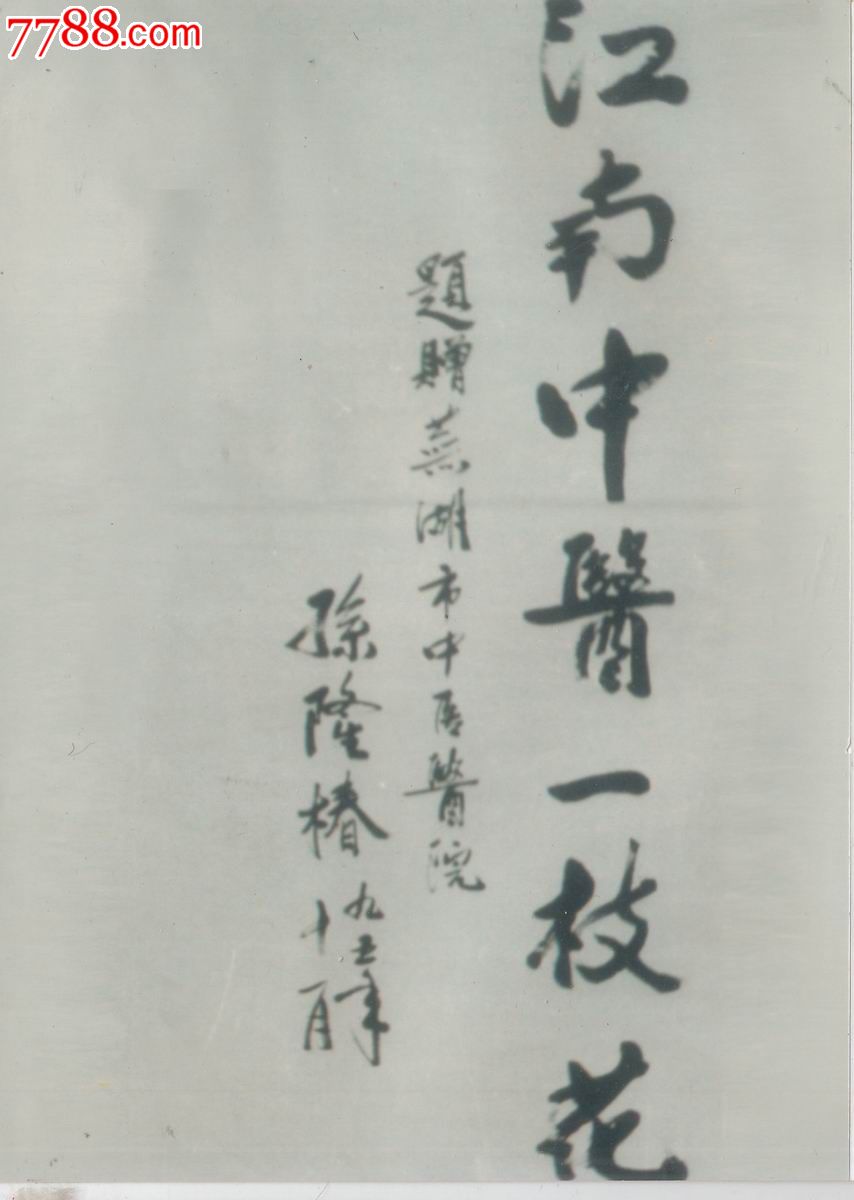 7788.com
江南中醫一枝花
題贈蕪湖市中医醫院
孫隆椿
九五年
十月